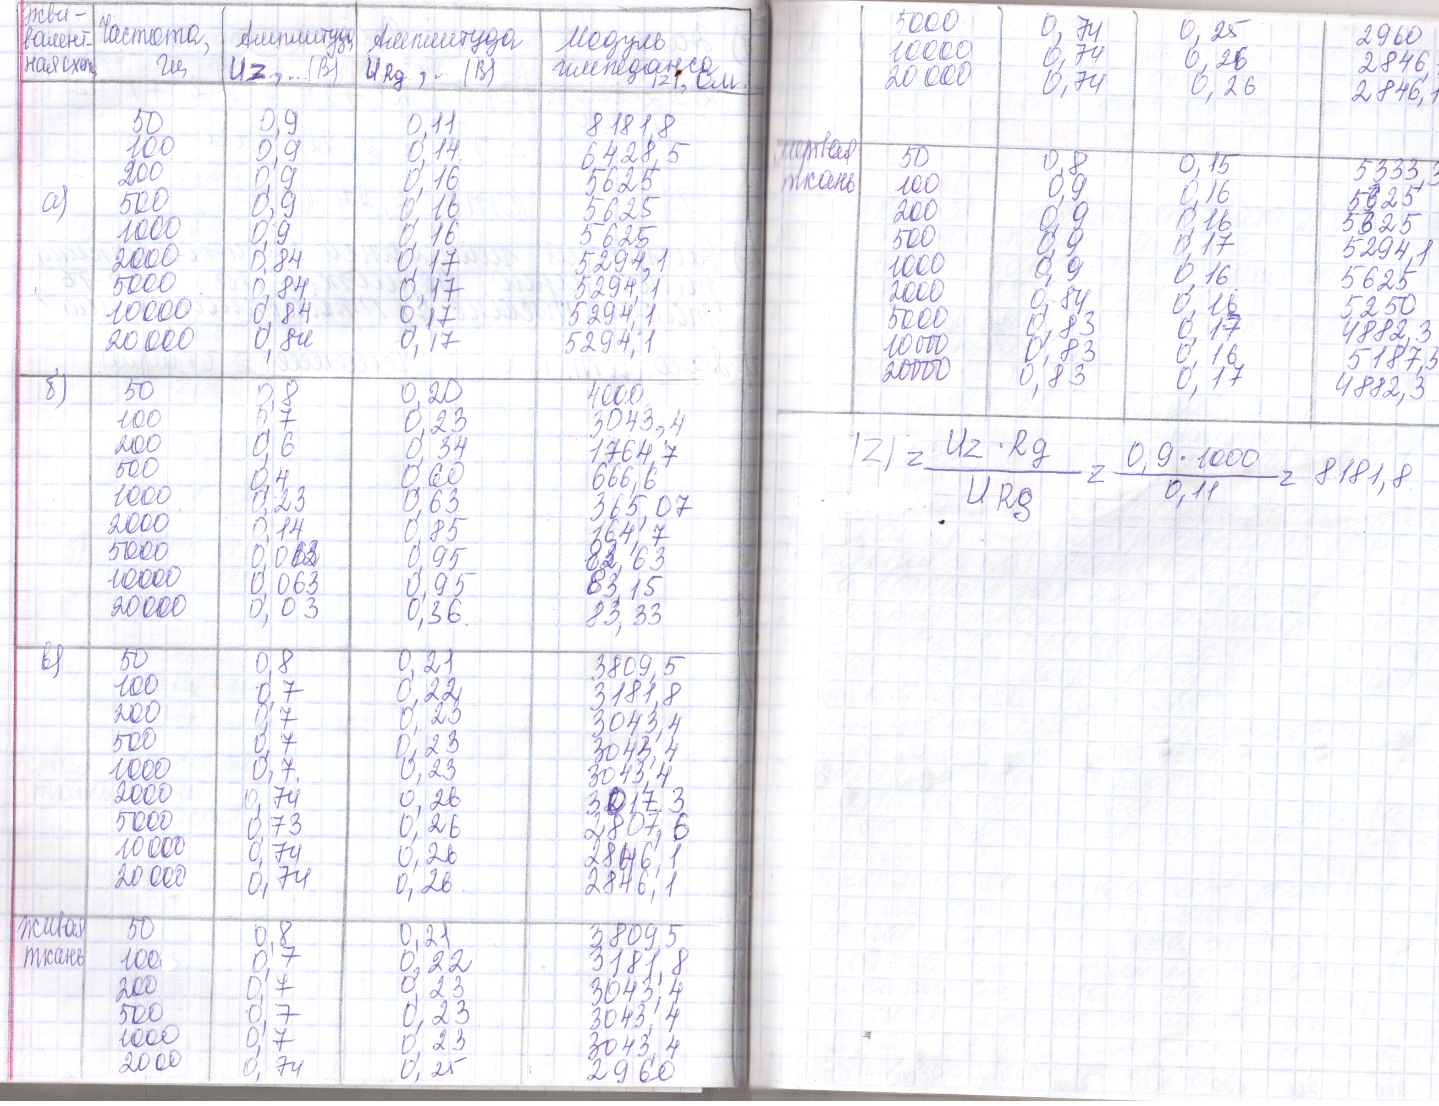 Экви- Частота, Амплитуда Амплитуда Модуль
валент- Гц Uz, ... (В) URg, .. (В) импеданса
ная схем |Z|, Ом.
50 0,9 0,11 8181,8
100 0,9 0,14 6428,5
200 0,9 0,16 5625
а) 500 0,9 0,16 5625
1000 0,9 0,16 5625
2000 0,84 0,17 5294,1
5000 0,84 0,17 5294,1
10000 0,84 0,17 5294,1
20000 0,84 0,17 5294,1
б) 50 0,8 0,20 4000
100 0,7 0,23 3043,4
200 0,6 0,34 1764,7
500 0,4 0,60 666,6
1000 0,23 0,63 365,07
2000 0,14 0,85 164,7
5000 0,95 82,63
10000 0,063 0,95 63,15
20000 0,03 0,36 83,33
в) 50 0,8 0,21 3809,5
100 0,7 0,22 3181,8
200 0,7 0,23 3043,4
500 0,7 0,23 3043,4
1000 0,7 0,23 3043,4
2000 0,74 0,26 3017,3
5000 0,73 0,26 2807,6
10000 0,74 0,26 2846,1
20000 0,74 0,26 2846,1
живая 50 0,8 0,21 3809,5
ткань 100 0,7 0,22 3181,8
200 0,7 0,23 3043,4
500 0,7 0,23 3043,4
1000 0,7 0,23 3043,4
2000 0,74 0,25 2960
5000 0,74 0,25 2960
10000 0,74 0,26 2846,
20000 0,74 0,26 2846,1
мертвая 50 0,8 0,15 5333,3
ткань 100 0,9 0,16 5625
200 0,9 0,16 5625
500 0,9 0,17 5294,1
1000 0,9 0,16 5625
2000 0,84 0,16 5250
5000 0,83 0,17 4882,3
10000 0,83 0,16 5187,3
20000 0,83 0,17 4882,3
|Z| = Uz · Rg / URg = 0,9 · 1000 / 0,11 = 8181,8